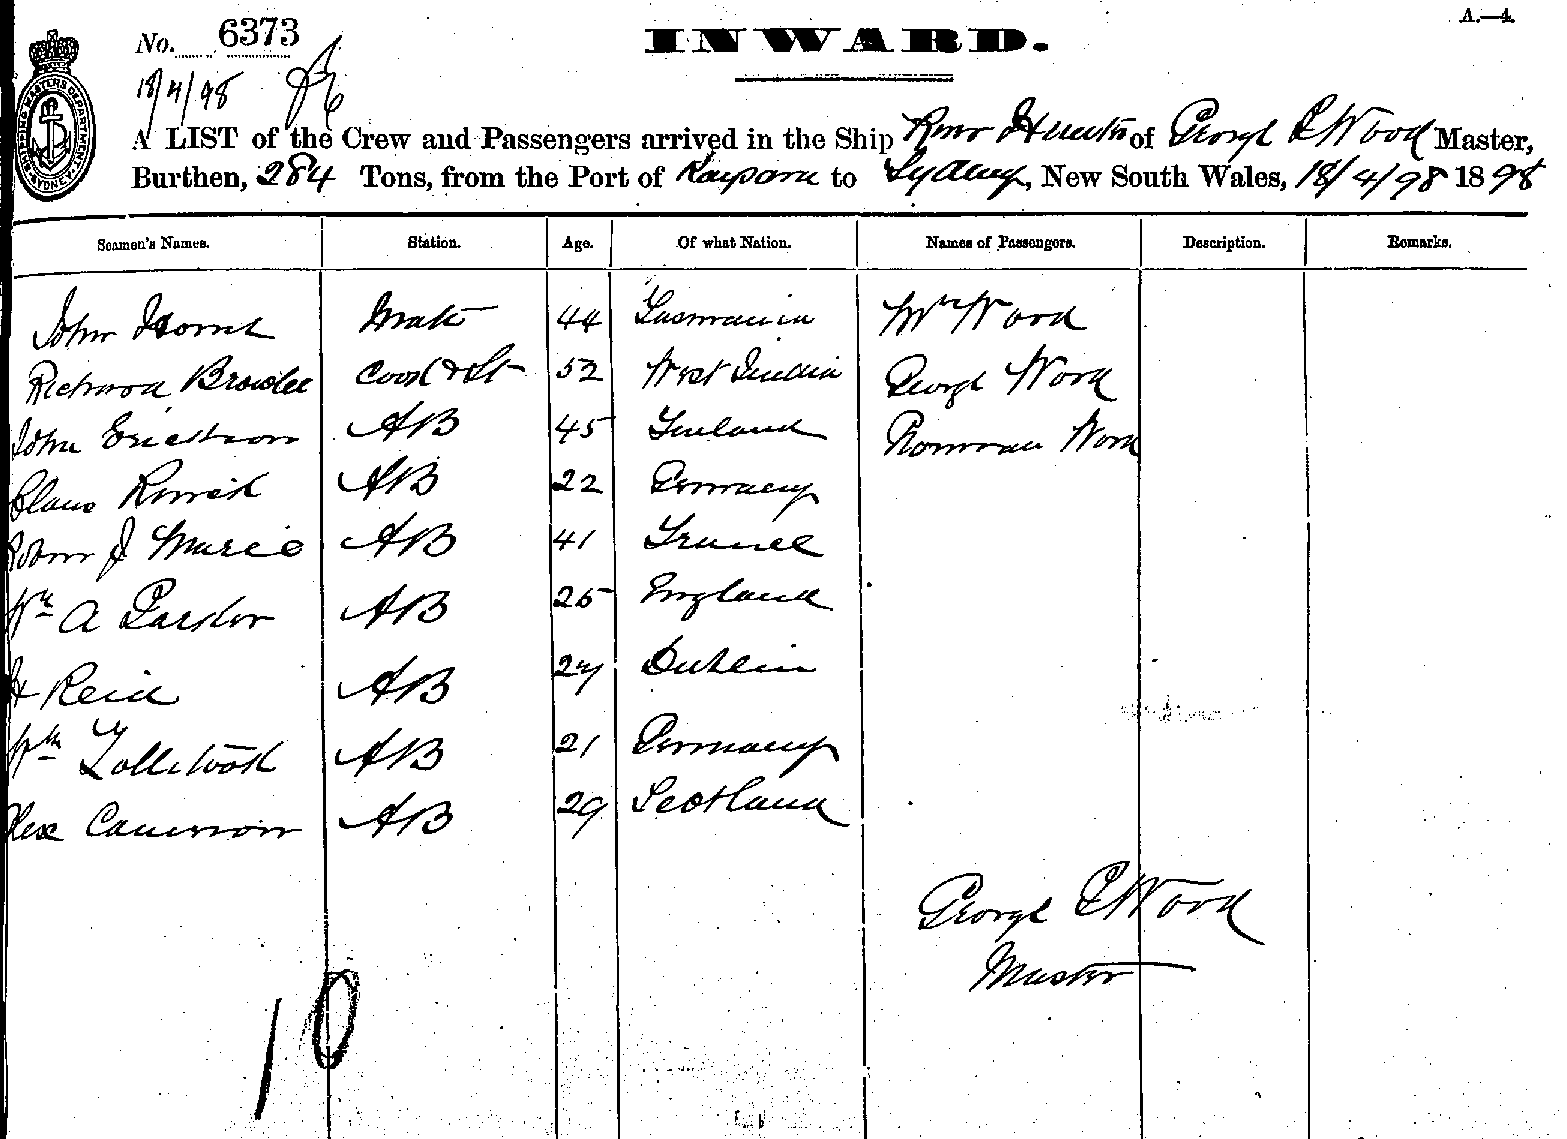 A.—4.
No. 6373
INWARD.
18/4/98
A LIST of the Crew and Passengers arrived in the Ship River Hunter of George P Wood Master,
Burthen, 284 Tons, from the Port of Kaipara to Sydney, New South Wales, 18/4/98 1898
Seamen's Names. Station. Age. Of what Nation. Names of Passengers. Description. Remarks.
John Mate 44 Tasmania Mrs Wood
Richmond Cook & St 52 West Indies George Wood
John Erickson AB 45 Finland Norman Wood
Claus AB 22 Germany
J AB 41 France
Wm A AB 25 England
H Reid AB 27 Dublin
Wm AB 21 Germany
Alex Cameron AB 29 Scotland
George P Wood
Master
10
SHIPPING MASTERS DEPARTMENT SYDNEY